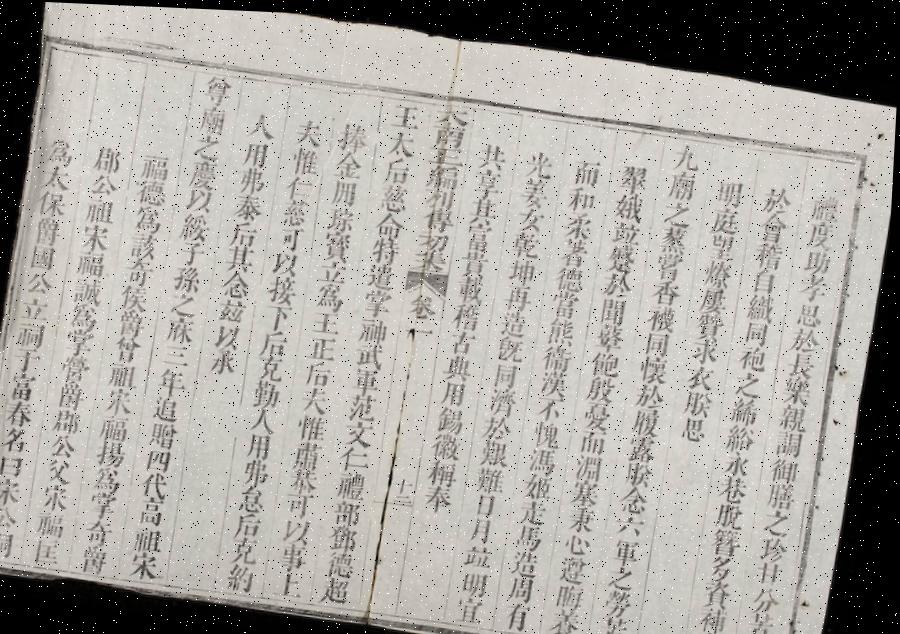 禮度助孝思於長樂親調御膳之珍甘分
於會稽自織同袍之絺綌永巷脫簪多
明庭望燎屢贊求衣朕思
九廟之蒸嘗香襪同懷於履露朕念六軍之勞
翠娥並蹙於聞鼙飽殷憂而淵塞秉心遵晦養
而和柔著德當熊衛漢不愧馮姬走馬造周有
光姜女乾坤再造既同濟於艱難日月竝明宜
共享其富貴載稽古典用錫徽稱奉
大南正編列傳初集 卷一 十二
王太后慈命特遣掌神武軍范文仁禮部鄧德超
捧金冊琮寶立爲王正后夫惟肅恭可以事上
夫惟仁慈可以接下后克勤人用弗怠后克約
人用弗泰后其念茲以承
尊廟之慶以綏子孫之庥三年追贈四代高祖宋
福德爲該奇侯爵曾祖宋福揚爲掌奇爵
郡公祖宋福誠爲掌營爵郡公父宋福匡
爲太保爵國公立祠于富春名曰宋公祠